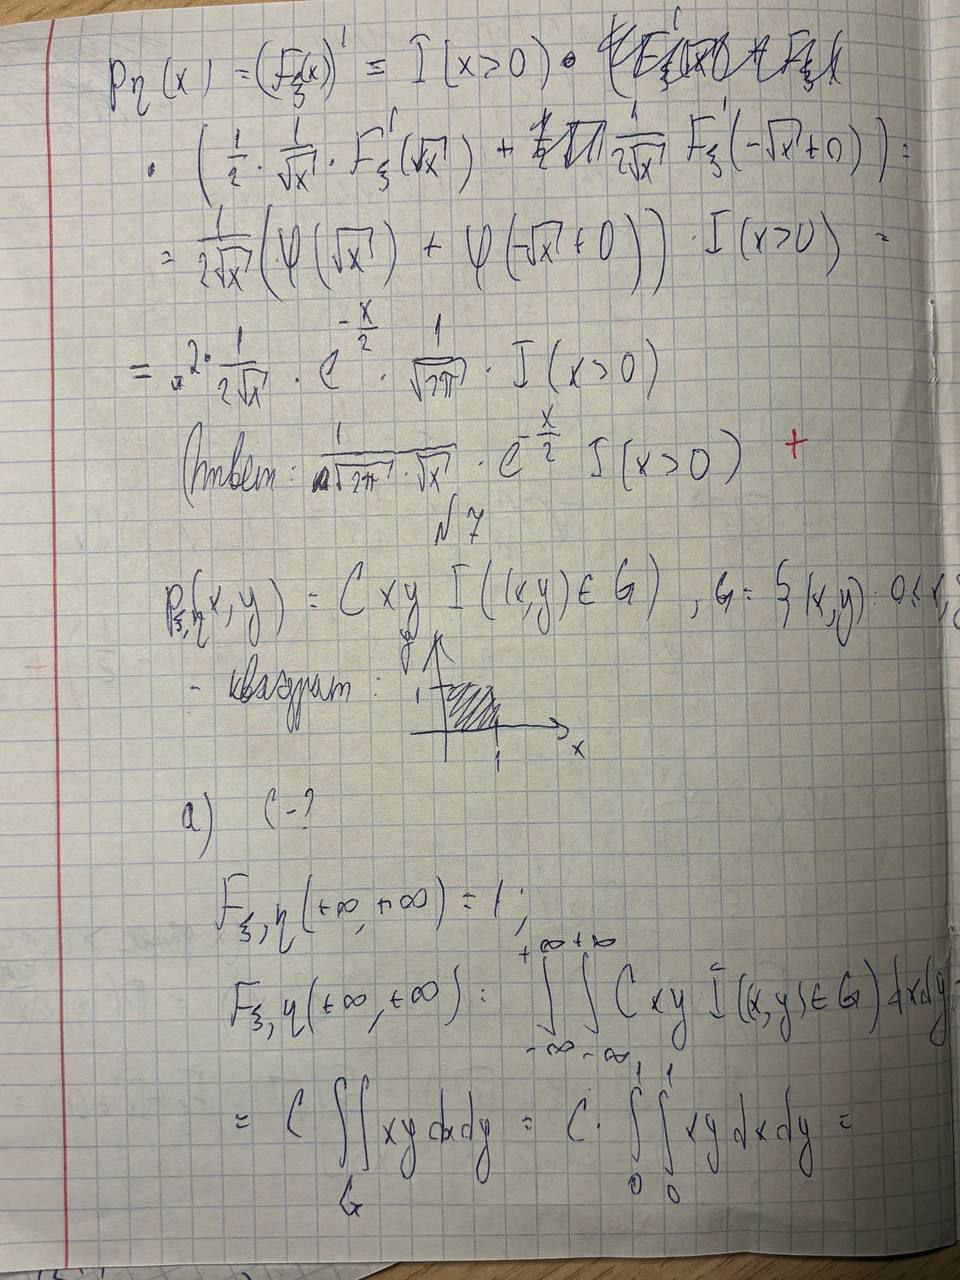 pη(x) = (Fξ(x))' = I(x>0) •
• (1/2 · 1/√x · F'ξ(√x) + 1/(2√x) F'ξ(-√x+0)) =
= 1/(2√x) (φ(√x) + φ(-√x+0)) · I(x>0) =
= 2 · 1/(2√x) · e^(-x/2) · 1/√(2π) · I(x>0)
Ответ: 1/(√(2π) · √x) · e^(-x/2) I(x>0) +
№7
pξ,η(x,y) = C xy I((x,y)∈G), G = {(x,y): 0≤x,y
- квадрат:
y
1
1
x
a) C-?
Fξ,η(+∞,+∞) = 1;
Fξ,η(+∞,+∞) = ∫_{-∞}^{+∞} ∫_{-∞}^{+∞} C xy I((x,y)∈G) dxdy =
= C ∬_G xy dxdy = C · ∫_0^1 ∫_0^1 xy dxdy =